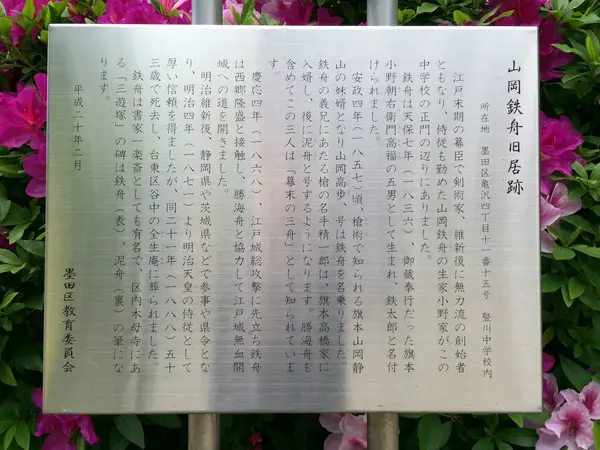 山岡鉄舟旧居跡
所在地 墨田区亀沢四丁目十一番十五号 竪川中学校内
江戸末期の幕臣で剣術家、維新後に無刀流の創始者
ともなり、侍従も勤めた山岡鉄舟の生家小野家がこの
中学校の正門の辺りにありました。
鉄舟は天保七年(一八三六)、御蔵奉行だった旗本
小野朝右衛門高福の五男として生まれ、鉄太郎と名付
けられました。
安政四年(一八五七)頃、槍術で知られる旗本山岡静
山の妹婿となり山岡高歩、号は鉄舟を名乗りました。
鉄舟の義兄にあたる槍の名手精一郎は、旗本高橋家に
入婿し、後に泥舟と号するようになります。勝海舟も
含めてこの三人は「幕末の三舟」として知られていま
す。
慶応四年(一八六八)、江戸城総攻撃に先立ち鉄舟
は西郷隆盛と接触し、勝海舟と協力して江戸城無血開
城への道を開きました。
明治維新後、静岡県や茨城県などで参事や県令とな
り、明治四年(一八七一)より明治天皇の侍従として
厚い信頼を得ましたが、同二十一年(一八八八)五十
三歳で死去し、台東区谷中の全生庵に葬られました。
鉄舟は書家一楽斎としても有名で、区内木母寺にあ
る「三遊塚」の碑は鉄舟(表)、泥舟(裏)の筆にな
ります。
平成二十年二月
墨田区教育委員会